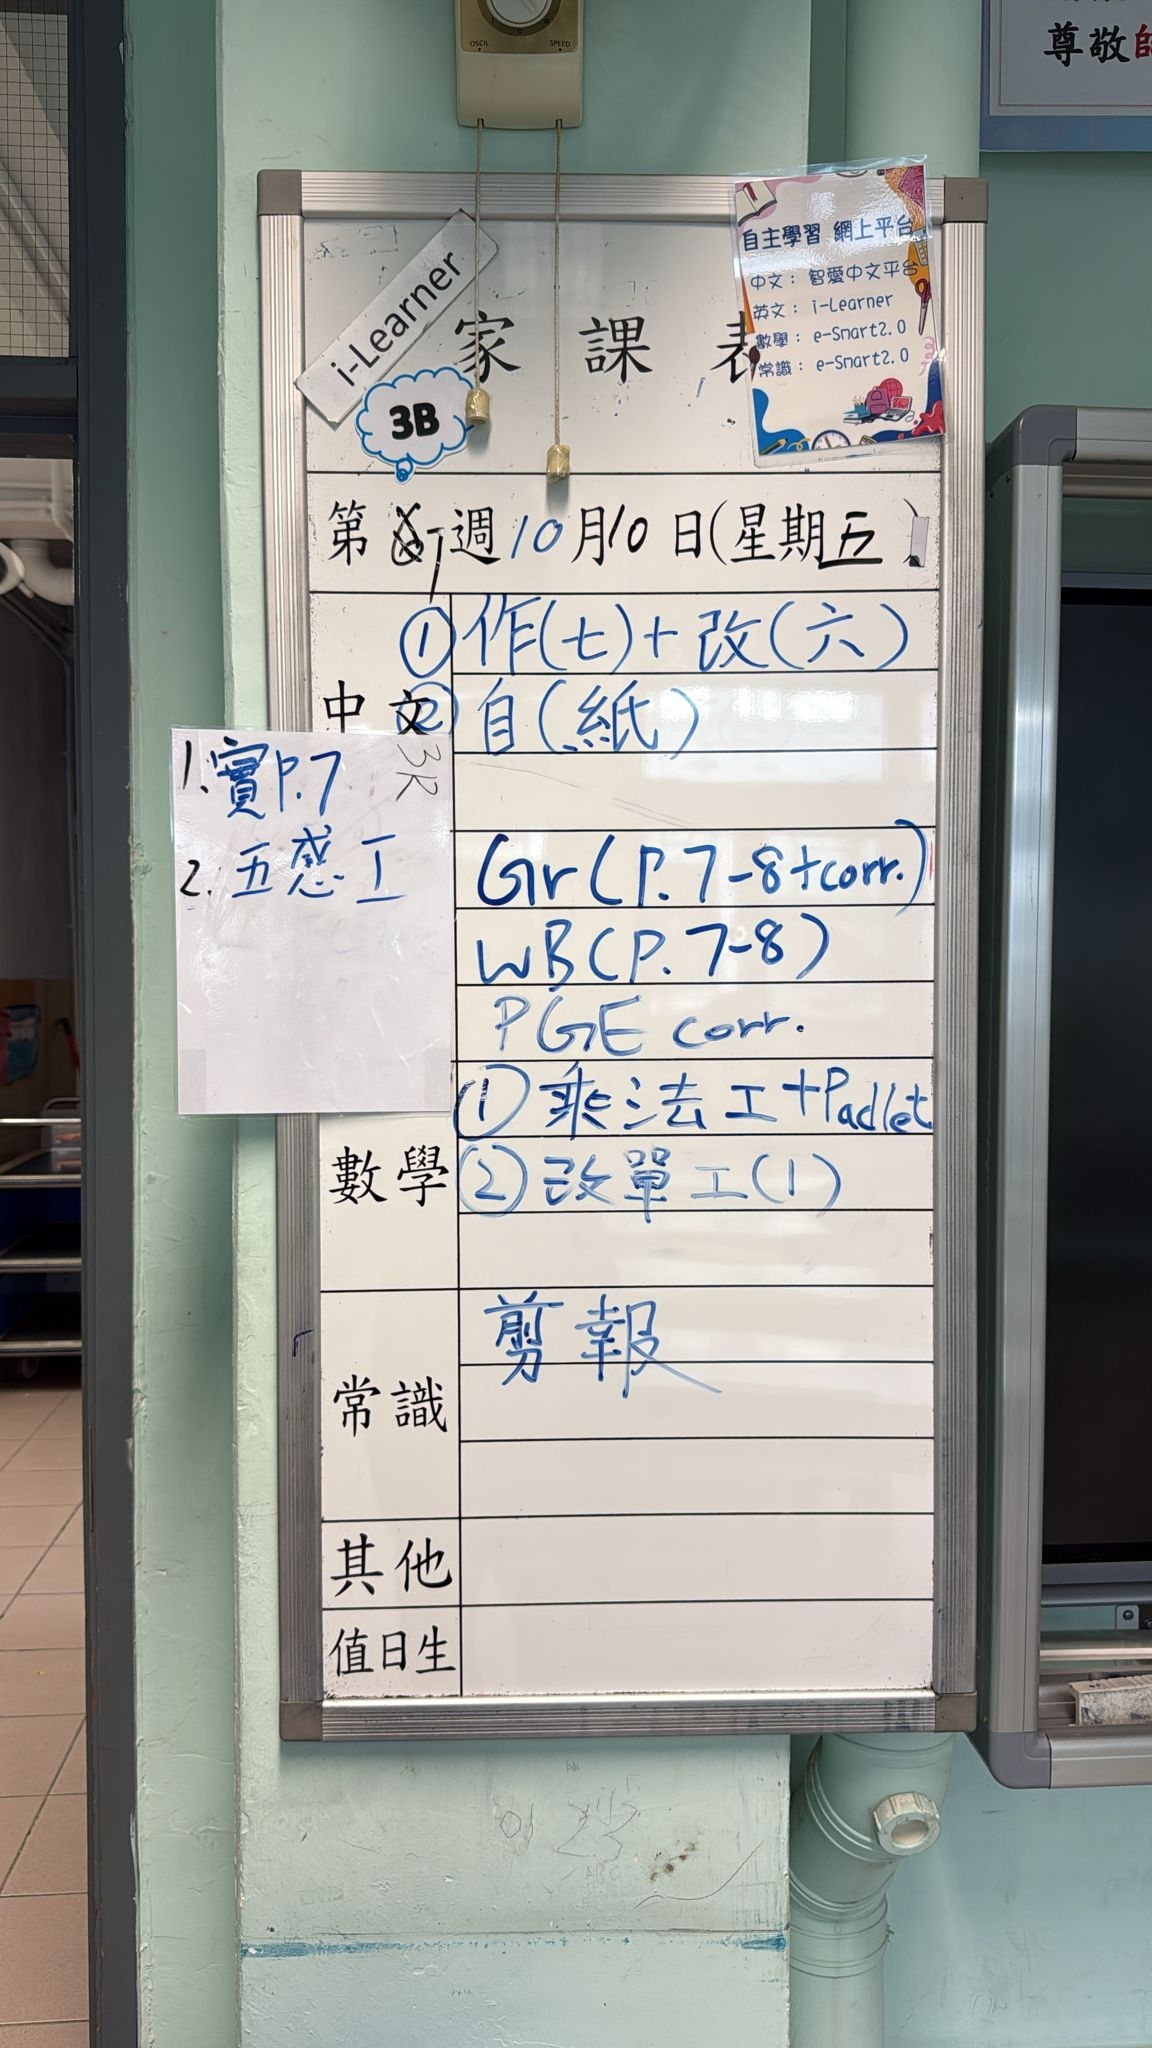 OSCIL SPEED
尊敬師
自主學習 網上平台
中文： 智愛中文平台
英文： i-Learner
數學： e-Smart2.0
常識： e-Smart2.0
i-Learner
家課表
3B
第 週10月10日(星期五)
中文
①作(七)+改(六)
②自(紙)
3R
1. 實P.7
2. 五感工
Gr(P.7-8+corr.)
WB(P.7-8)
PGE corr.
數學
①乘法工+Padlet
②改單工(1)
常識
剪報
其他
值日生